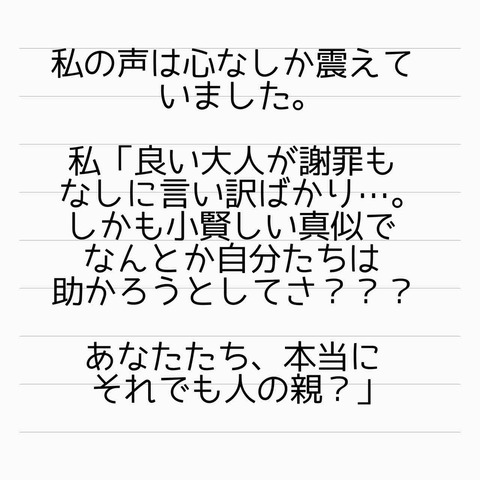 私の声は心なしか震えて
いました。
私「良い大人が謝罪も
なしに言い訳ばかり…。
しかも小賢しい真似で
なんとか自分たちは
助かろうとしてさ？？？
あなたたち、本当に
それでも人の親？」